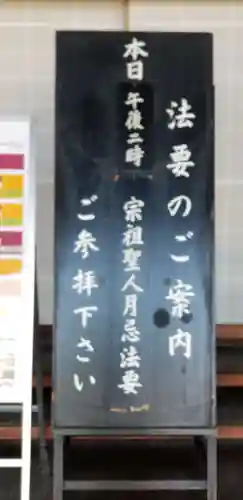 法要のご案内
本日 午後二時 宗祖聖人月忌法要
ご参拝下さい